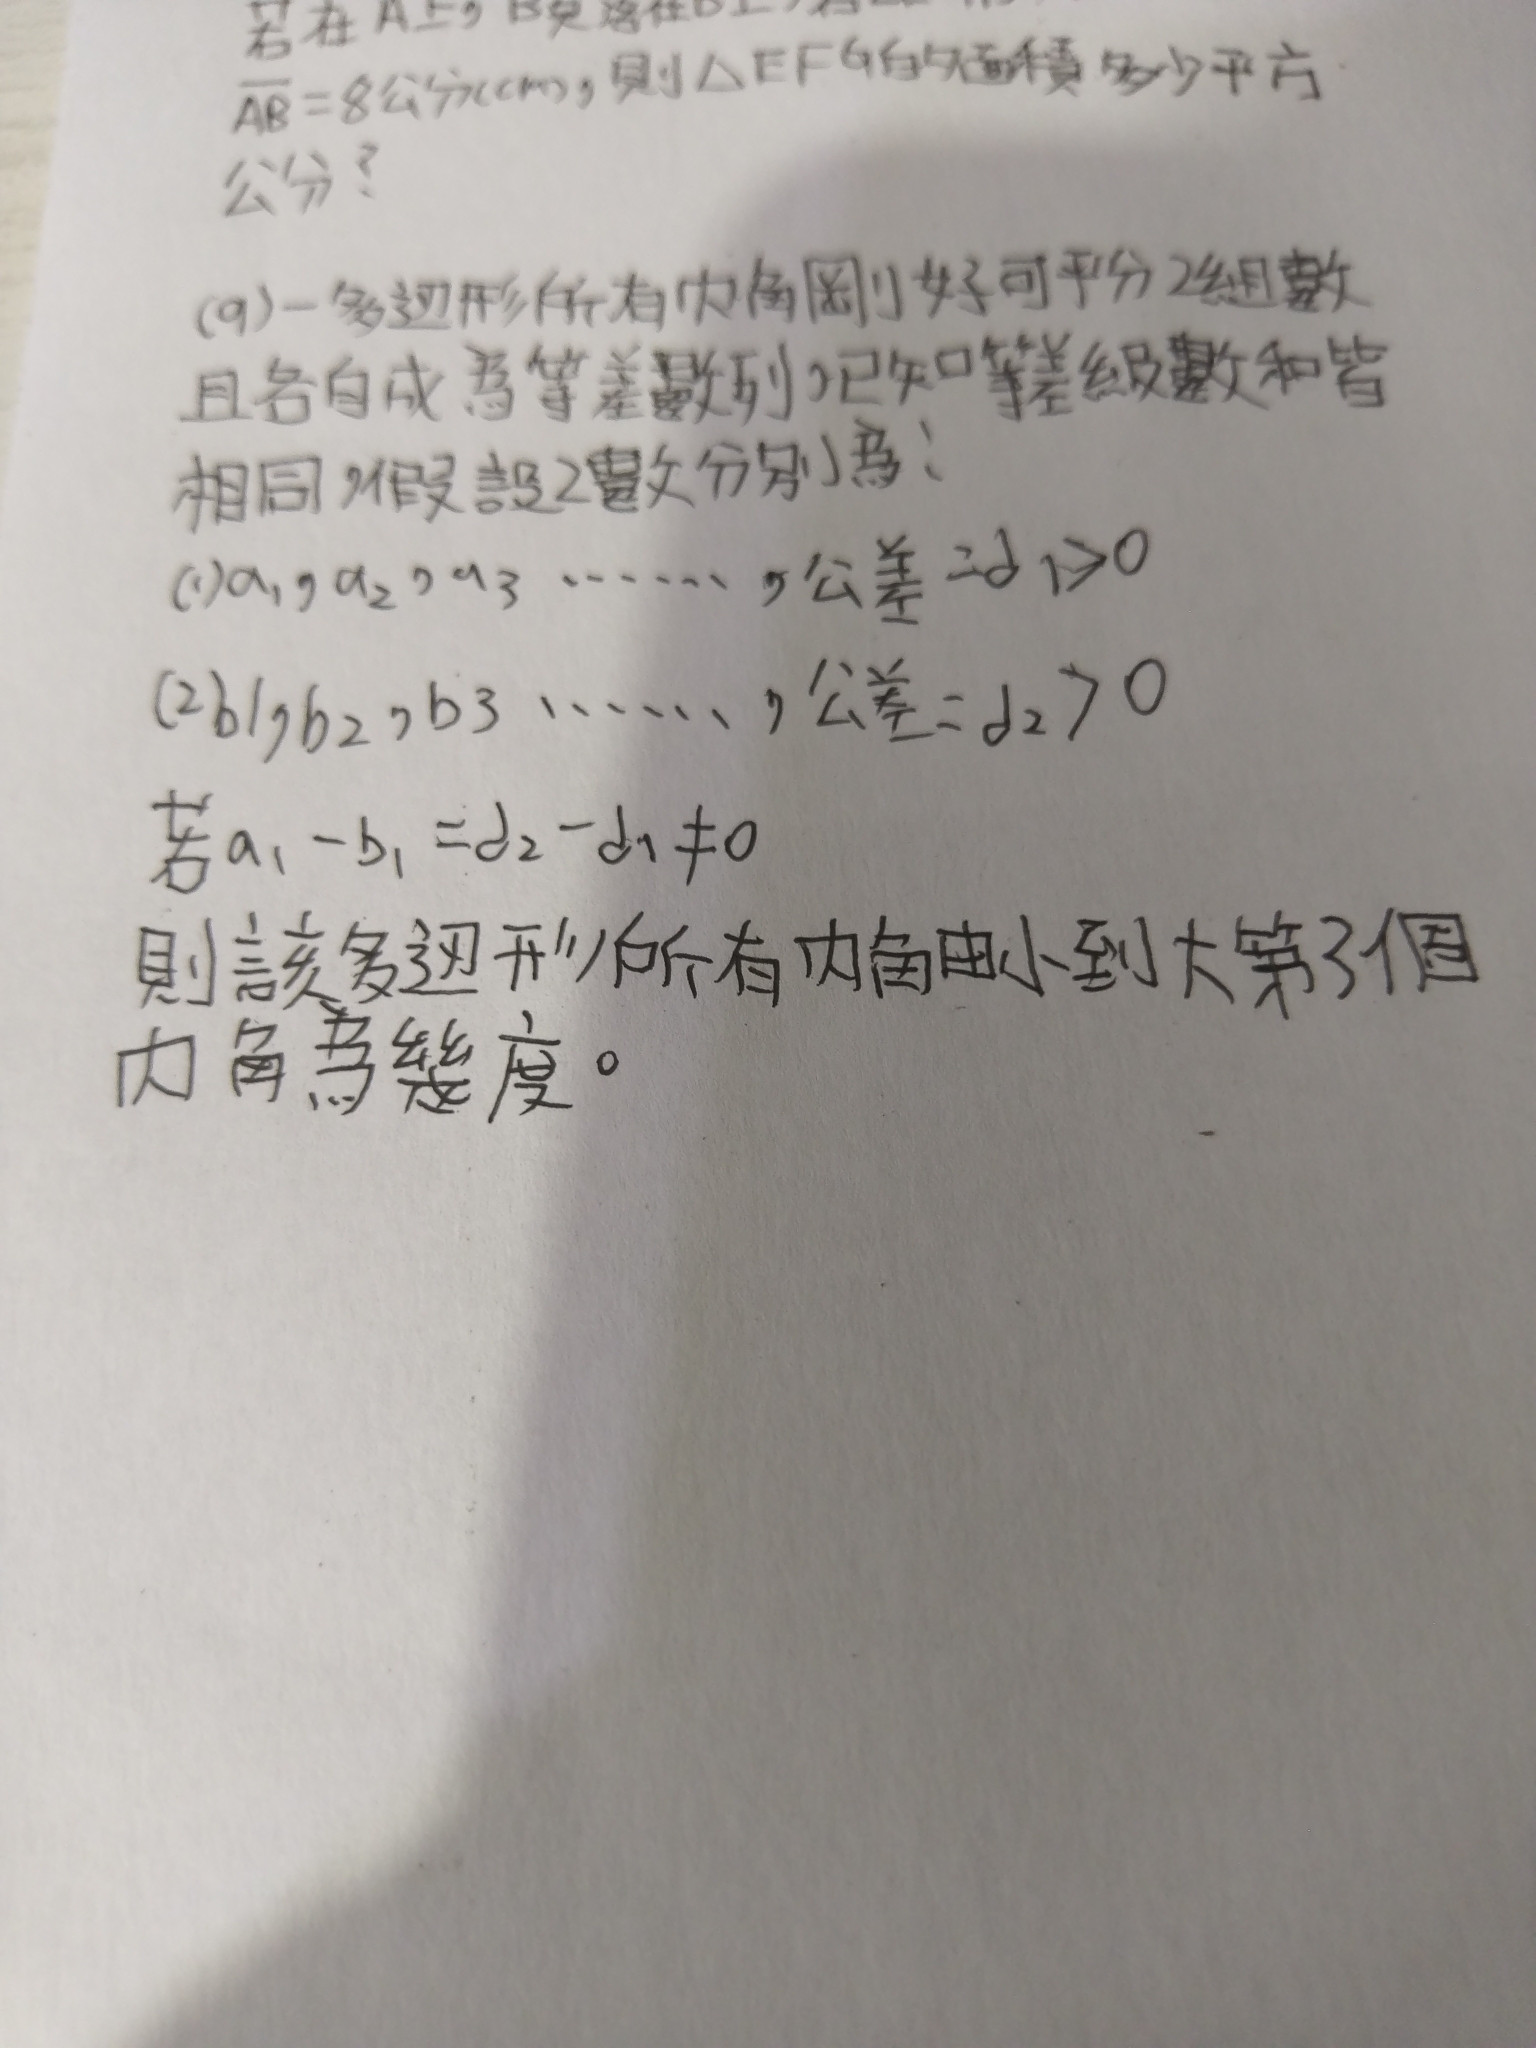 若在A上,B莫落在B上,若
AB=8公分(cm),則△EFG的面積多少平方
公分?
(9)一多边形所有内角剛好可平分2組數
且各自成為等差數列,已知等差級數和皆
相同,假設2數分別為:
(1)a₁,a₂,a₃ ……,公差=d₁>0
(2b1,b₂,b3 ……,公差=d₂>0
若a₁-b₁=d₂-d₁≠0
則該多边形所有内角由小到大第3個
内角為幾度。